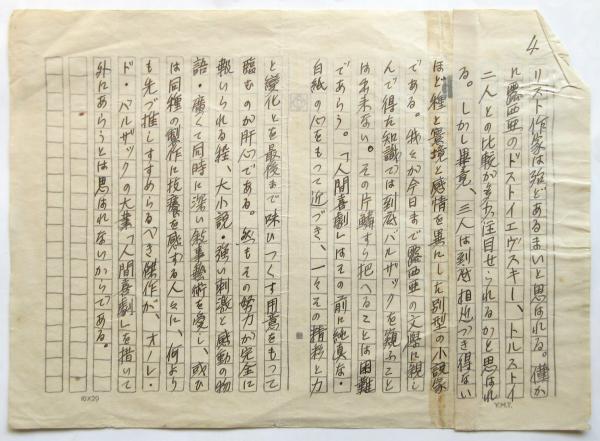 4
リスト作家は殆どあるまいと思はれる。僅か
に露西亜のドストイエヴスキー、トルストイ
二人との比較が多少注目せられるかと思はれ
る。しかし畢竟、三人は到底相近づき得ない
ほど種と環境と感情を異にした別型の小説家
である。我々が今日まで露西亜の文学に親し
んで得た知識では到底バルザックを窺ふこと
は出来ない。その片鱗すら把へることは困難
であらう。「人間喜劇」はその前に純真な・
白紙の心をもって近づき、一々その精粋と力
と變化とを最後まで味ひつくす用意をもって
臨むのが肝心である。然もその努力が完全に
報いられる程、大小説・強い刺激と感動の物
語・廣くて同時に深い叙事藝術を愛し、或ひ
は同種の製作に技癢を感ずる人々に、何より
も先づ推しすすめらるべき傑作が、オノレ・
ド・バルザックの大業「人間喜劇」を措いて
外にあらうとは思はれないからである。
10×20
Y.M.T.